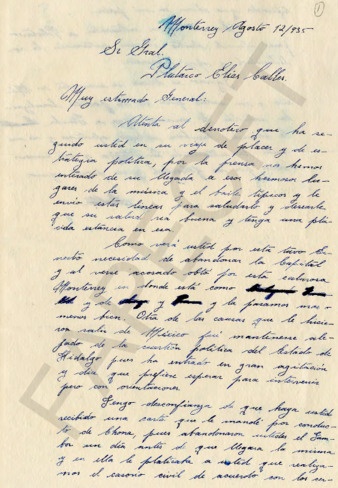 1
Monterrey Agosto 12/935
Sr Gral.
Plutarco Elías Calles.
Muy estimado General:
Atenta al derrotero que ha se-
guido usted en su viaje de placer y de es-
trategia política, por la prensa nos hemos
enterado de su llegada a esos hermosos lu-
gares de la música y el baile típicos y le
envío estas líneas para saludarlo y desearle
que su salud sea buena y tenga una plá-
cida estancia en esa.
Como verá usted por esta tuvo Er-
nesto necesidad de abandonar la Capital
y al verse acosado optó por esta calurosa
Monterrey en donde está como
y de y y la pasamos mas
menos bien. Otra de las causas que le hicie-
ron salir de México fué mantenerse ale-
jado de la cuestión política del Estado de
Hidalgo pues ha entrado en gran agitación
y dice que prefiere esperar para intervenir
pero con orientaciones.
Tengo desconfianza de que haya usted
recibido una carta que le mandé por conduc-
to de Chona, pues abandonaron ustedes el Tam-
bor un día antes de que llegara la misma
y en ella le platicaba a usted que realiza-
mos el casorio civil de acuerdo con los